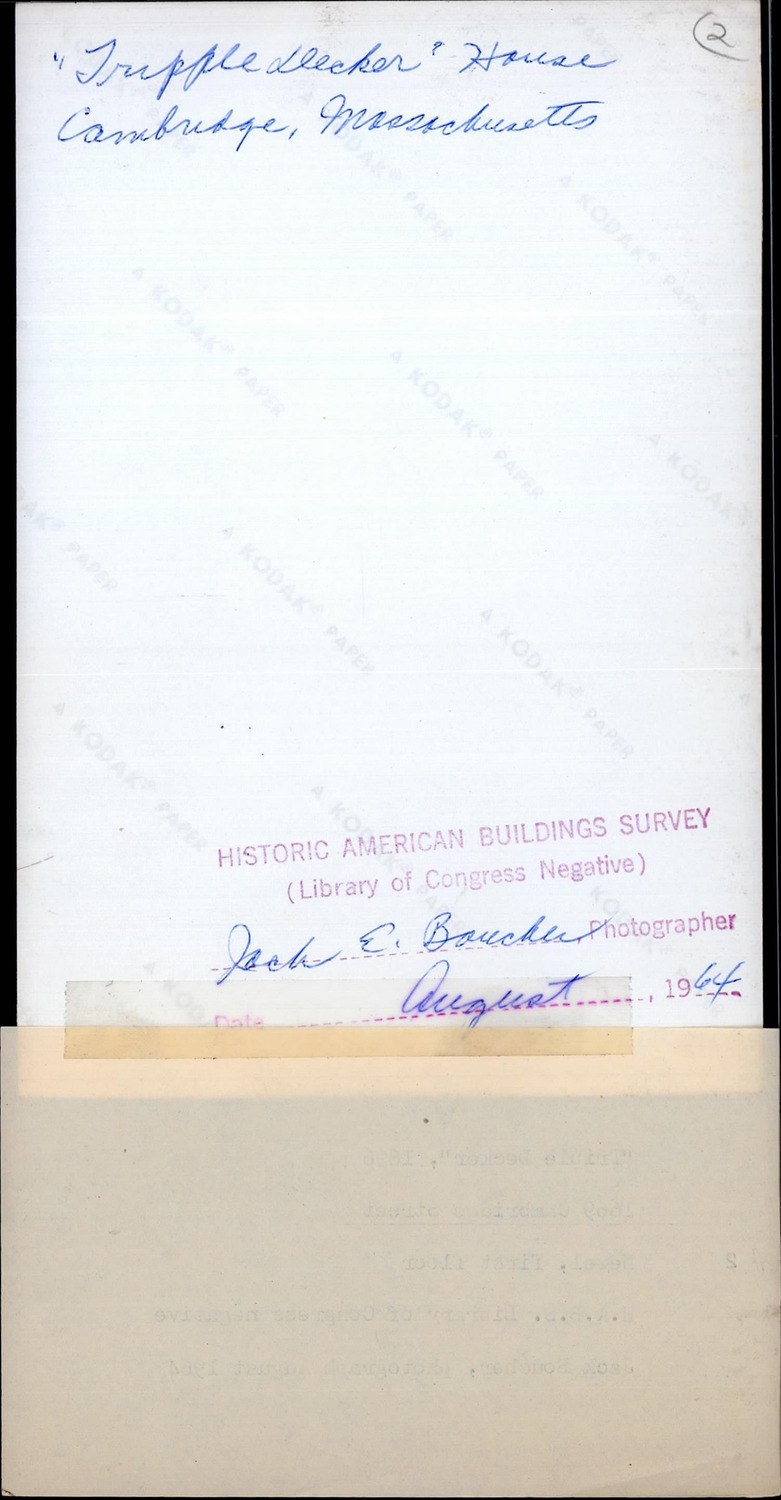 2
"Trippledecker" House
Cambridge, Massachusetts
KODAK PAPER
HISTORIC AMERICAN BUILDINGS SURVEY
(Library of Congress Negative)
Jack E. Boucher, Photographer
Date August, 1964
"Triple Decker", 1896
1669 Cambridge Street
2 Newel, first floor
H.A.B.S. Library of Congress negative
Jack Boucher, photograph August 1964